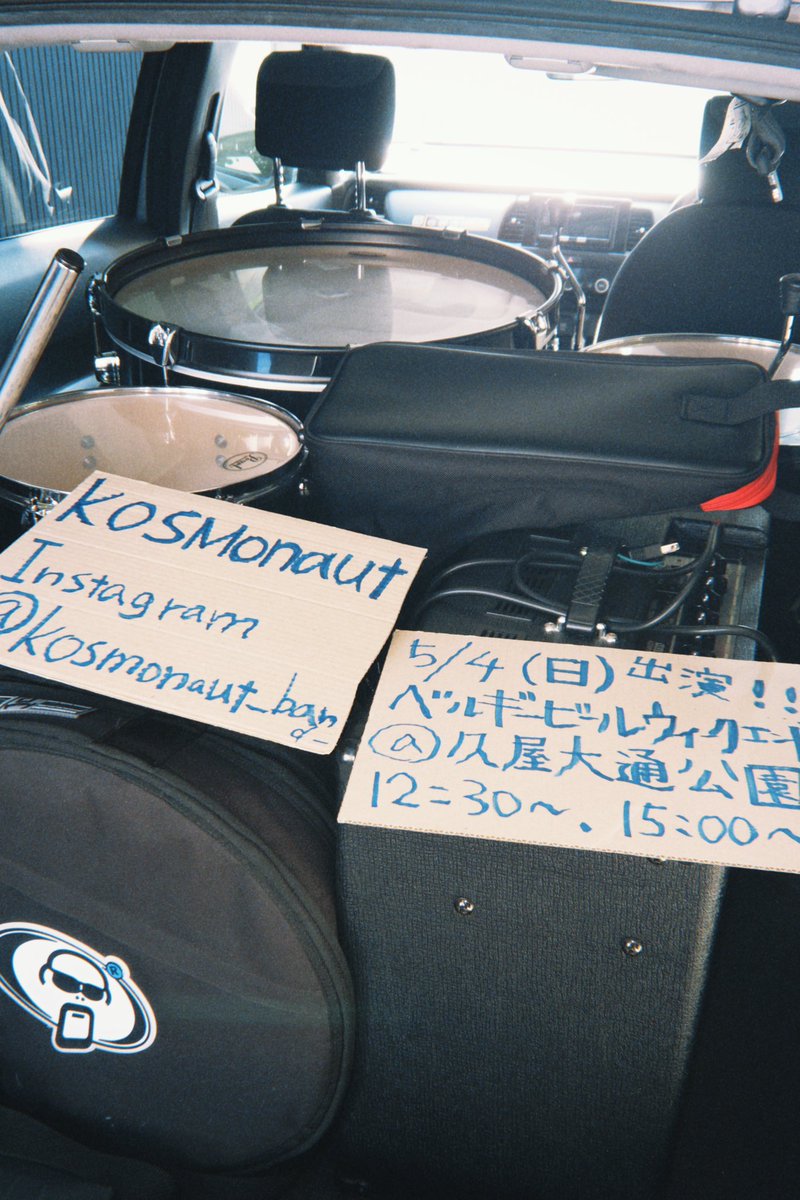 KOSMonaut
Instagram
@kosmonaut_ban
d_
5/4(日)出演!!
ベルギービールウィークエンド
@久屋大通公園
12:30～、15:00～
Pearl
R